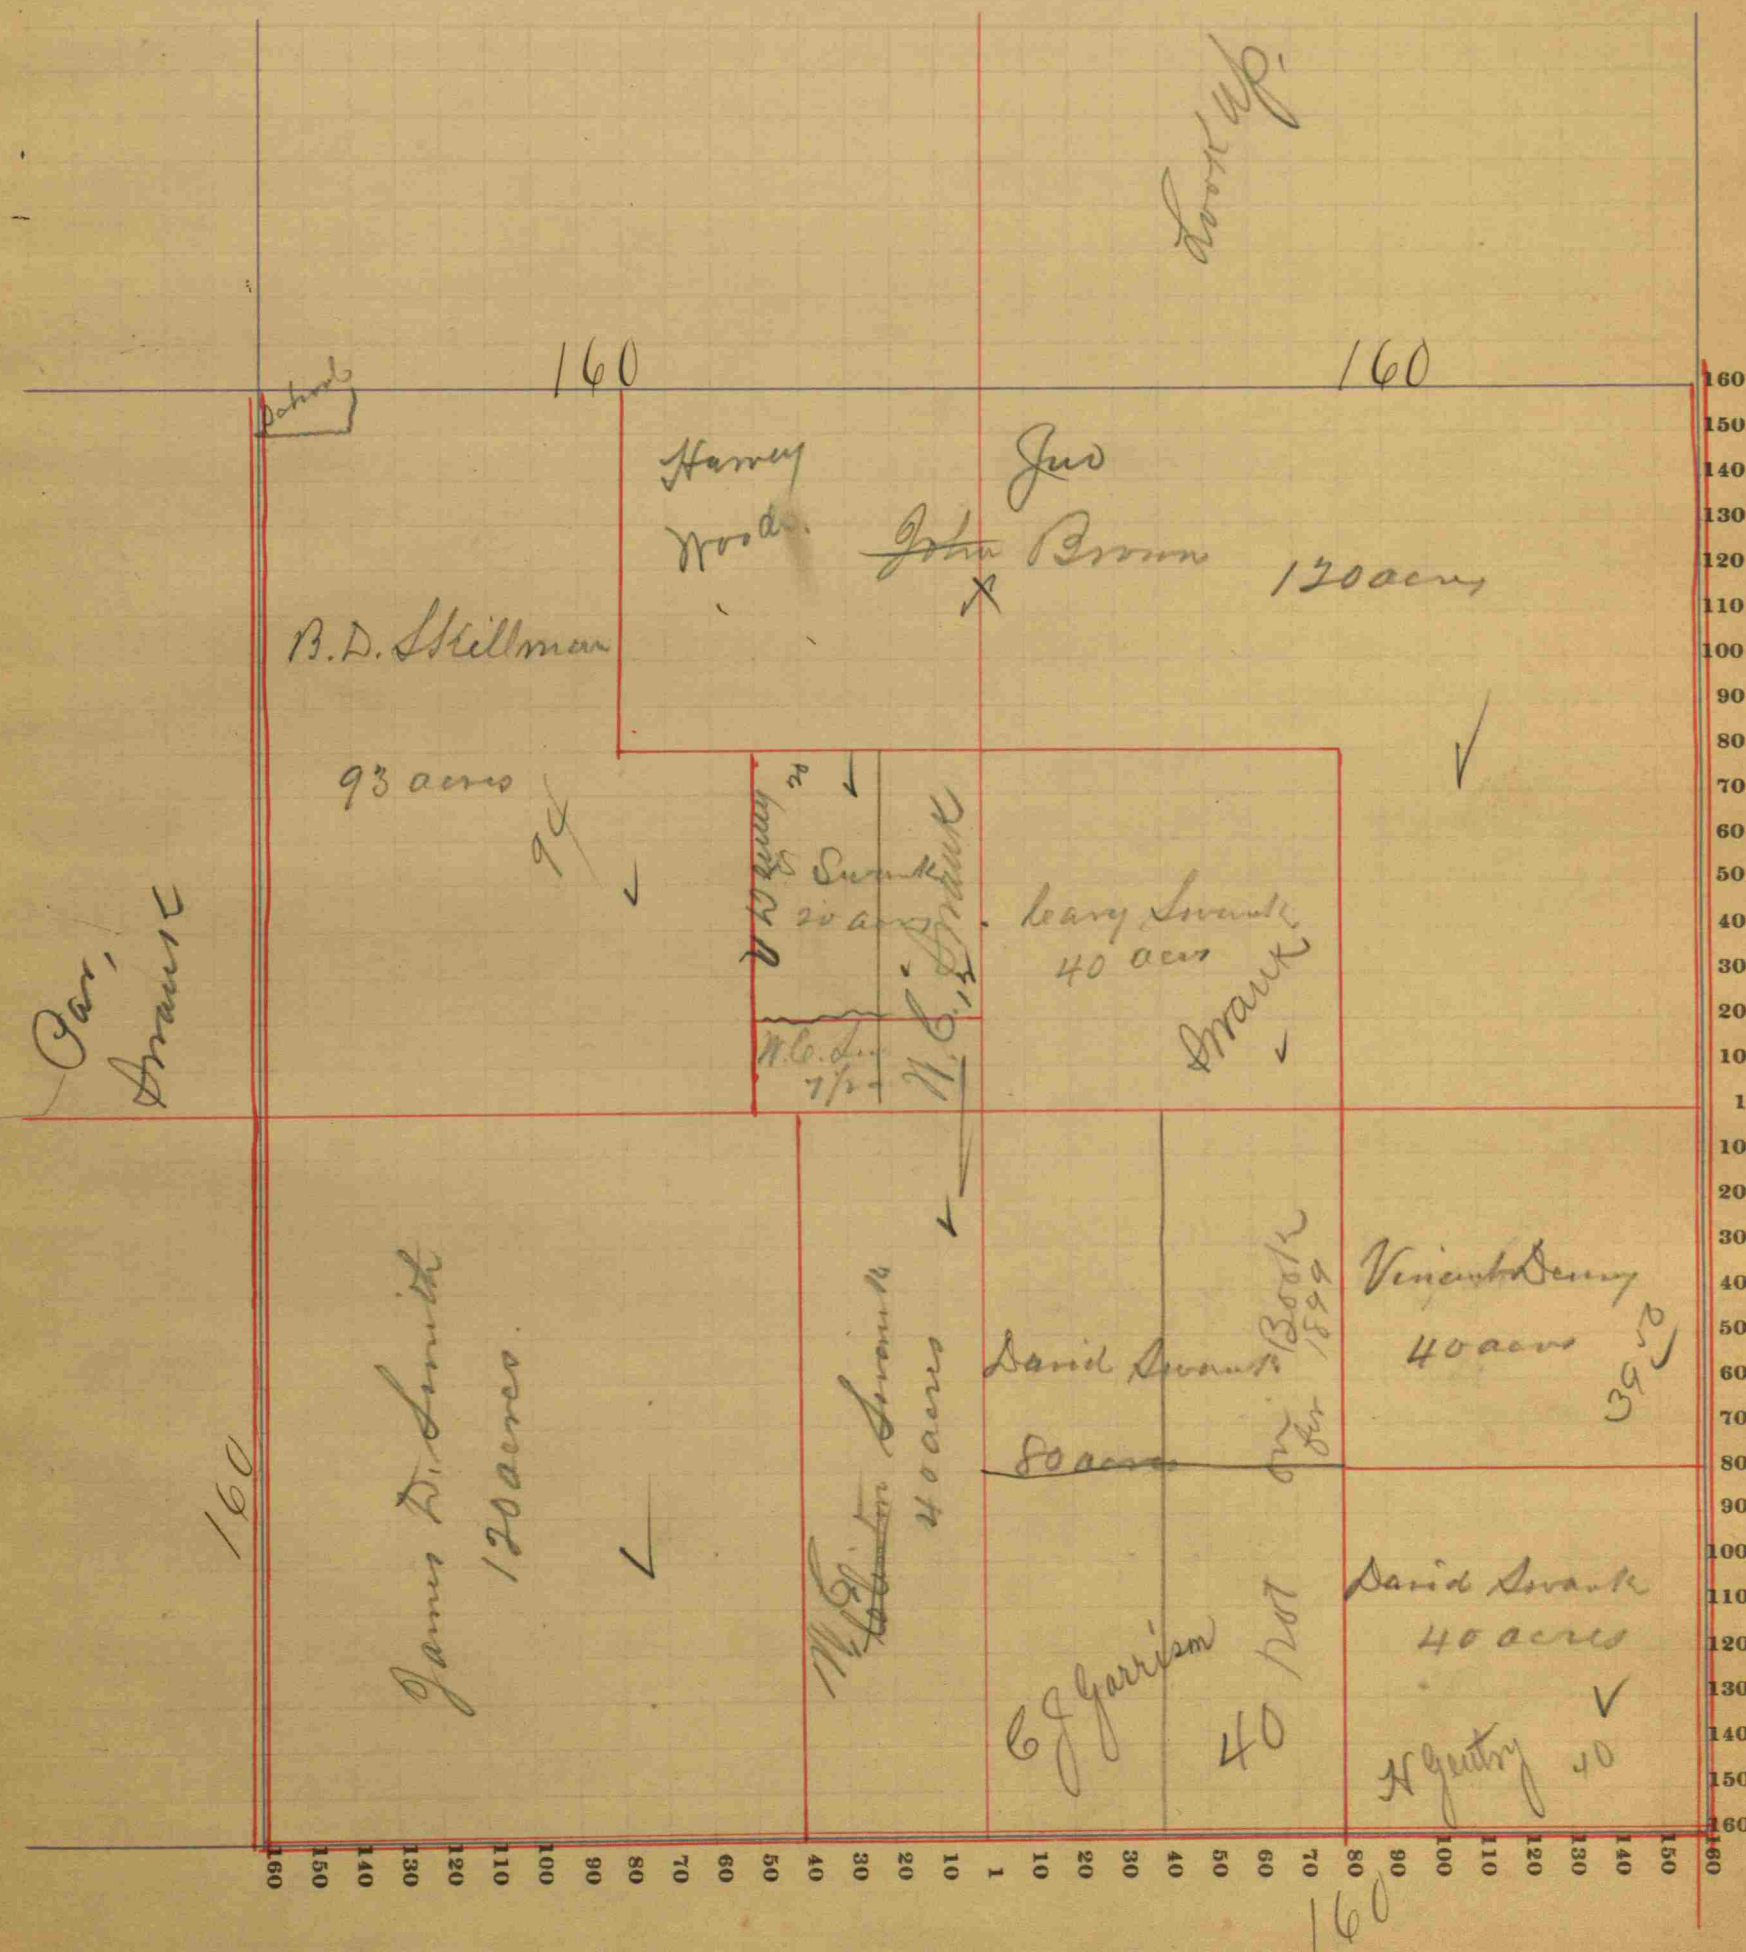 Look up.
160
160
School
Harvey
Woods.
Jno
John Brown
X
120 acres
B.D. Skillman
93 acres
94
V Denny
Swank
20 acres
W.C. Swank
15
W.C. Sw
7 1/2
Cary Swank
40 acrs
Swank
Oar,
Swank
James D. Smith
120 acres.
W.C.
Columbus Swank
40 acres
David Swank
80 acres
not on Book
for 1899
Vincent Denny
40 acres
39
C J Garrison
40
David Swank
40 acres
H Gentry 40
160
160
160
150
140
130
120
110
100
90
80
70
60
50
40
30
20
10
1
10
20
30
40
50
60
70
80
90
100
110
120
130
140
150
160
160 150 140 130 120 110 100 90 80 70 60 50 40 30 20 10 1 10 20 30 40 50 60 70 80 90 100 110 120 130 140 150 160